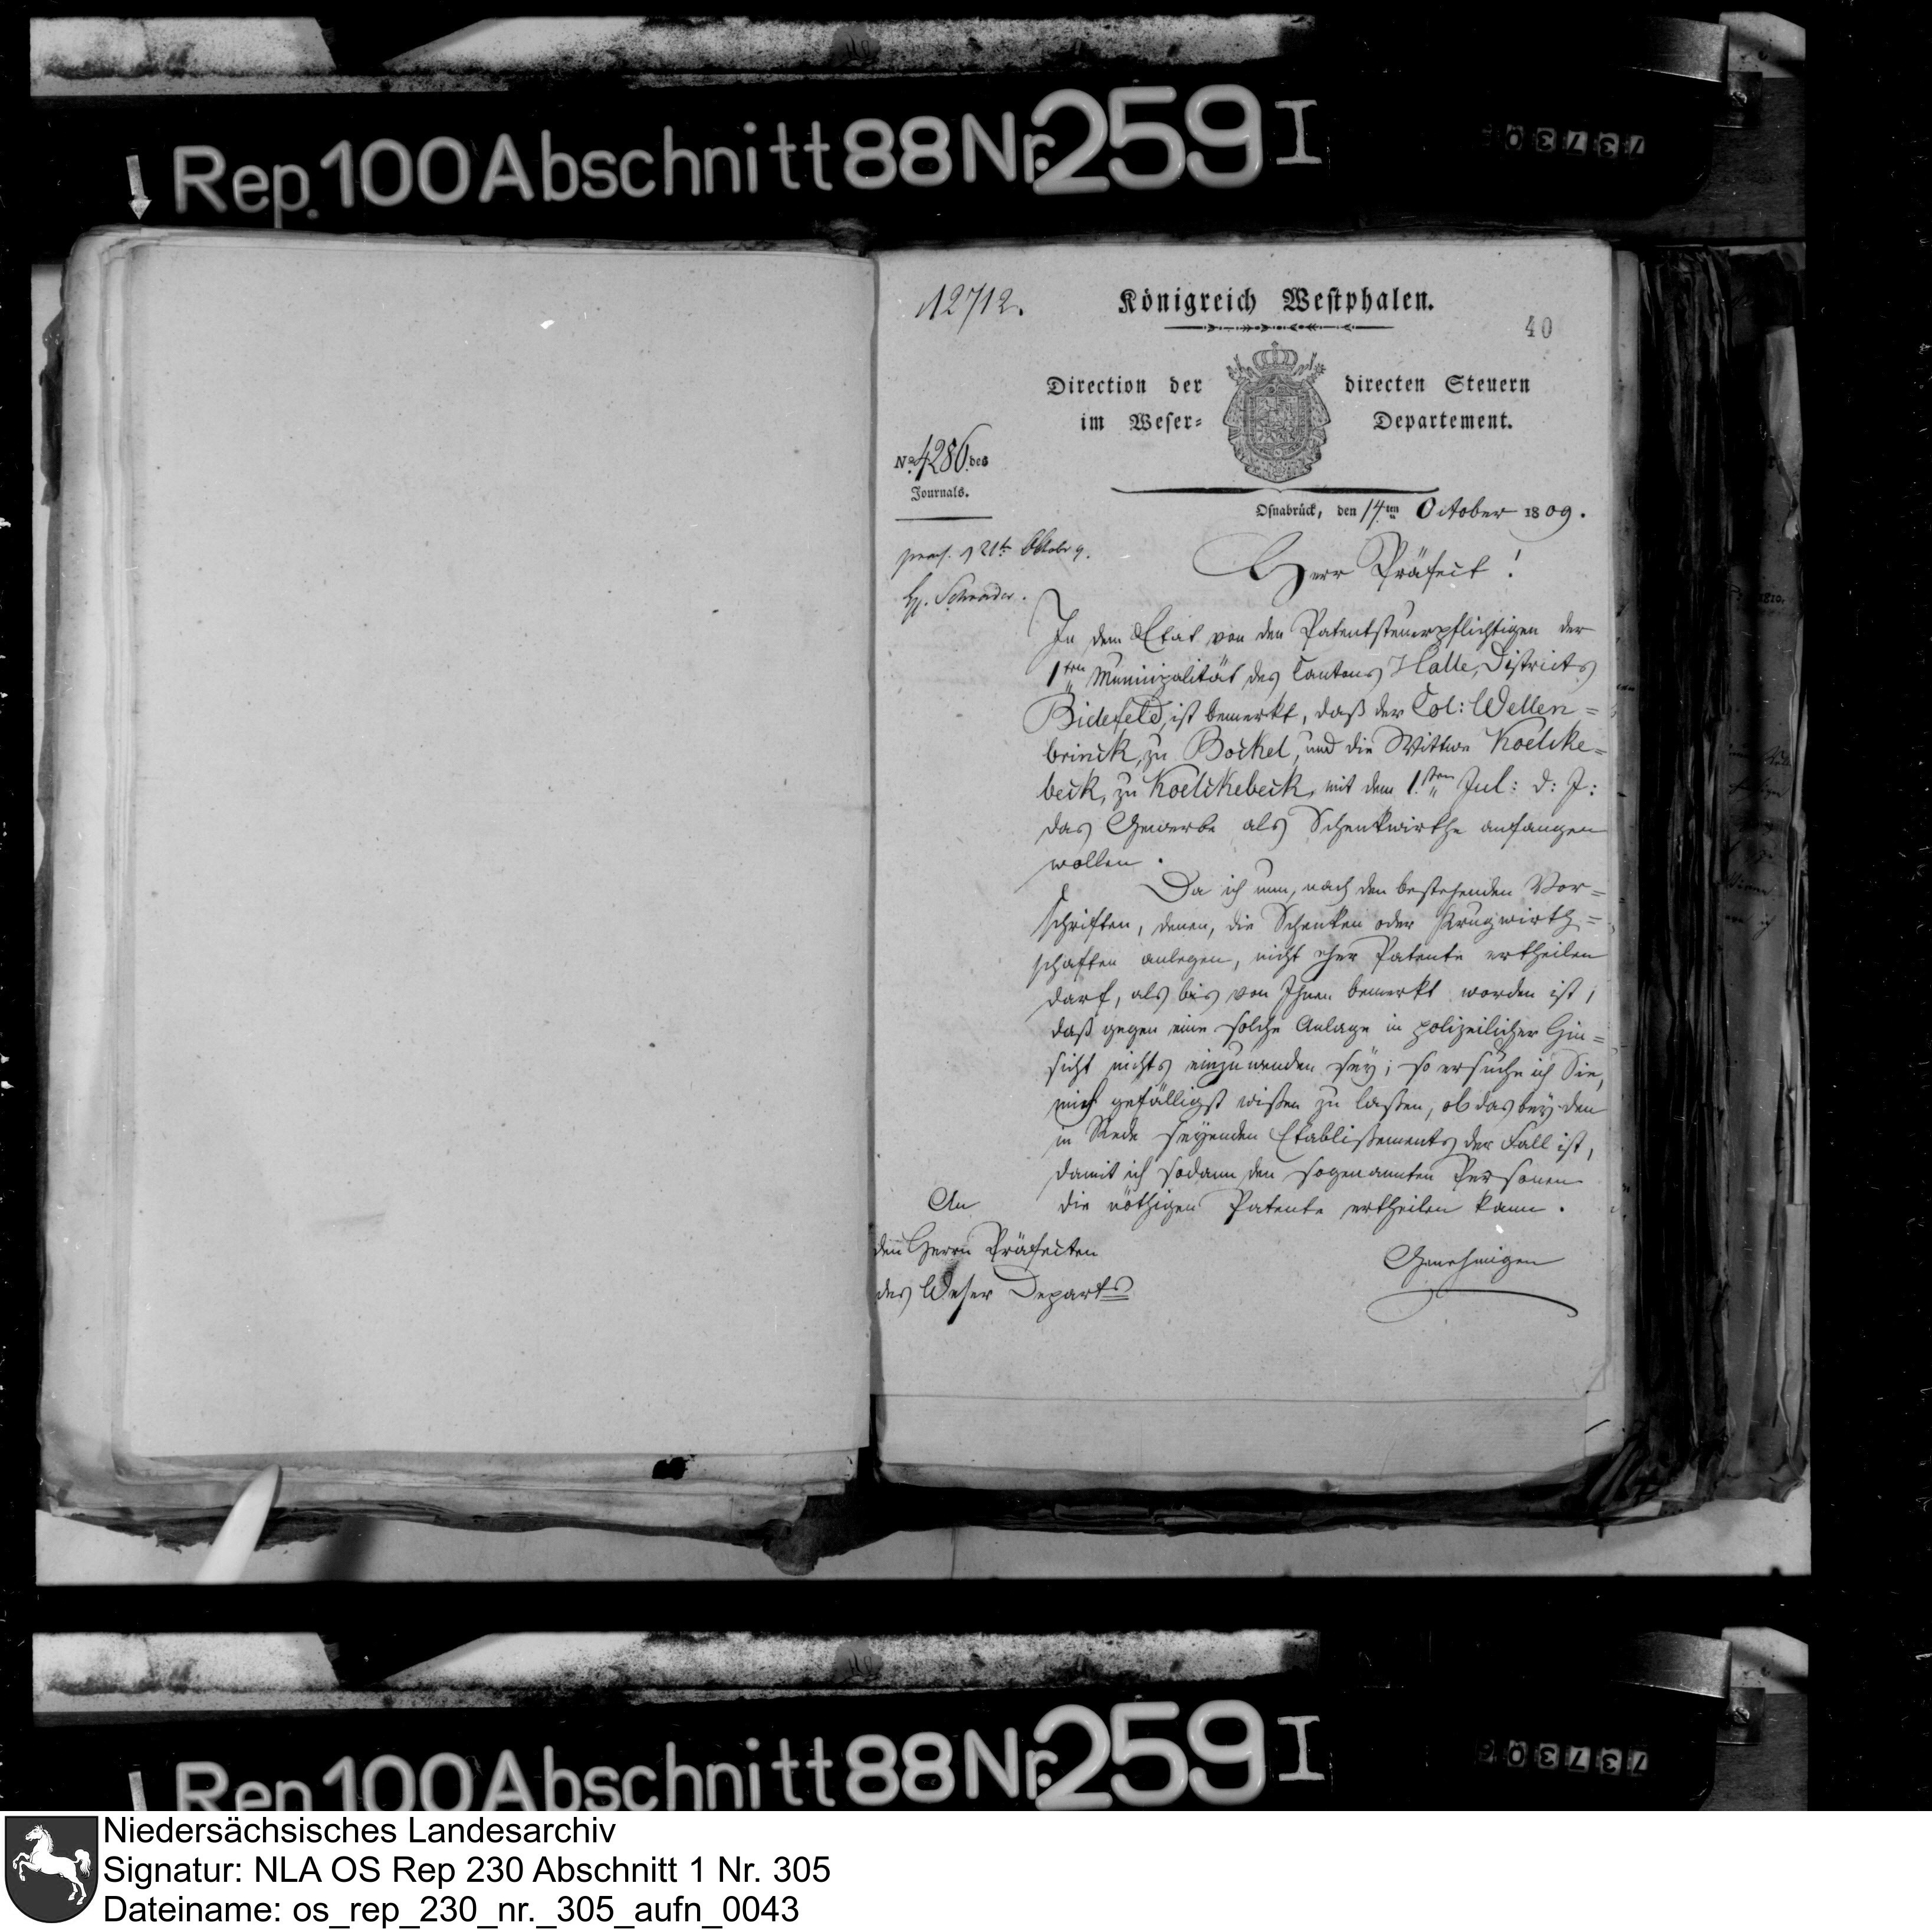 Rep. 100 Abschnitt 88 Nr. 259 I
12712.
Königreich Westphalen.
40
Direction der directen Steuern
im Weser- Departement.
No. 4286. des
Journals.
Osnabrück, den 14ten October 1809.
praes. d 21t. Octobr 9.
H. Schroeder.
Herr Präfect!
In dem Etat von den Patentsteuerpflichtigen der
1ten Municipalität des Cantons Halle, Districts
Bielefeld, ist bemerkt, daß der Col: Wellen=
brinck, zu Bockel, und die Wittwe Koelcke=
beck, zu Koelckebeck, mit dem 1.sten Jul: d: J:
das Gewerbe als Schenkwirthe anfangen
wollen.
Da ich nun, nach den bestehenden Vor=
schriften, denen, die Schenken oder Krugwirth=
schaften anlegen, nicht eher Patente ertheilen
darf, als bis von Ihnen bemerkt worden ist,
daß gegen eine solche Anlage in polizeilicher Hin=
sicht nichts einzuwenden sey; so ersuche ich Sie,
mich gefälligst wißen zu laßen, ob das bey den
in Rede seyenden Etablißements der Fall ist,
damit ich sodann den sogenannten Personen
die nöthigen Patente ertheilen kann.
Genehmigen
An
den Herrn Präfecten
des Weser Departs
Rep 100 Abschnitt 88 Nr. 259 I
Niedersächsisches Landesarchiv
Signatur: NLA OS Rep 230 Abschnitt 1 Nr. 305
Dateiname: os_rep_230_nr._305_aufn_0043